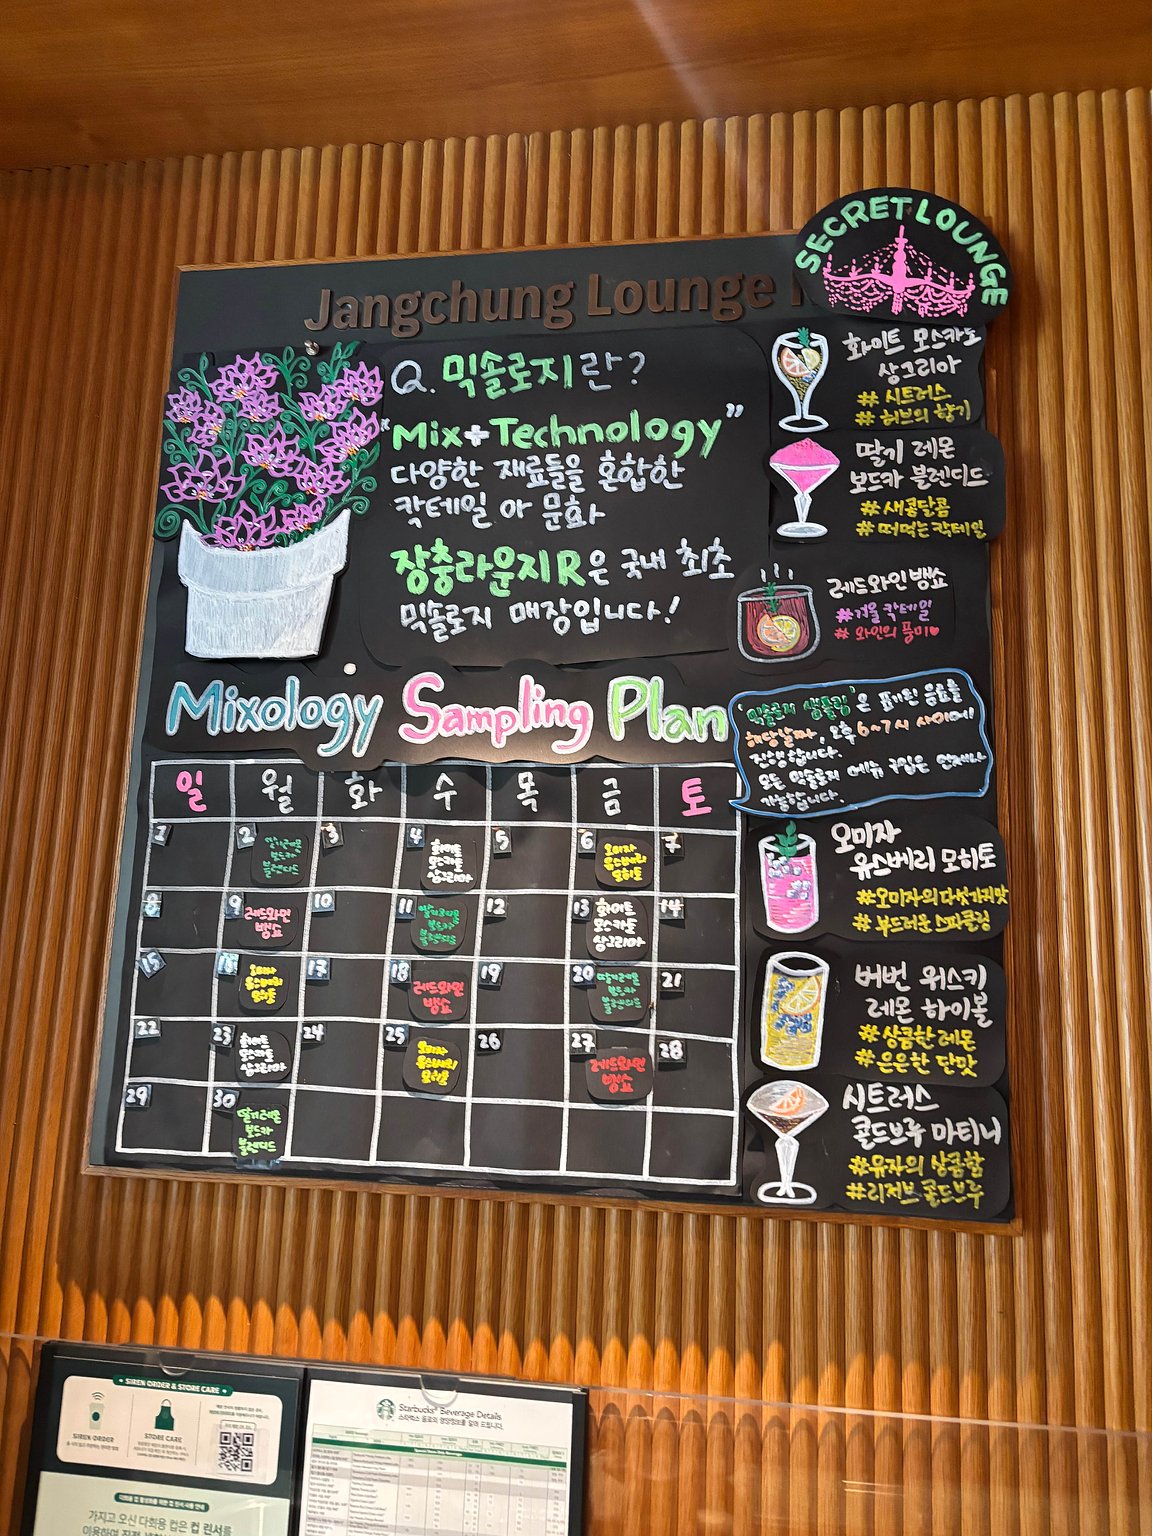 SECRET LOUNGE
Jangchung Lounge
Q. 믹솔로지란?
"Mix+Technology"
다양한 재료들을 혼합한
칵테일 아 문화
장충라운지R은 국내 최초
믹솔로지 매장입니다!
화이트 모스카토
상그리아
# 시트러스
# 허브의 향기
딸기 레몬
보드카 블렌디드
# 새콤달콤
# 떠먹는 칵테일
레드와인 뱅쇼
#겨울 칵테일
# 와인의 풍미♥
Mixology Sampling Plan
'믹솔로지 샘플링'은 표기된 음료를
해당날짜, 오후 6~7시 사이에
진행합니다.
모든 믹솔로지 메뉴 구입은 언제나
가능합니다.
일 월 화 수 목 금 토
1 2 3 4 5 6 7
딸기레몬
보드카
블렌디드
화이트
모스카토
상그리아
오미자
유스베리
모히토
8 9 10 11 12 13 14
레드와인
뱅쇼
딸기레몬
보드카
블렌디드
화이트
모스카토
상그리아
15 16 17 18 19 20 21
오미자
유스베리
모히토
레드와인
뱅쇼
딸기레몬
보드카
블렌디드
22 23 24 25 26 27 28
화이트
모스카토
상그리아
오미자
유스베리
모히토
레드와인
뱅쇼
29 30
딸기레몬
보드카
블렌디드
오미자
유스베리 모히토
#오미자의다섯가지맛
# 부드러운 스파클링
버번 위스키
레몬 하이볼
# 상큼한 레몬
# 은은한 단맛
시트러스
콜드브루 마티니
#유자의 상큼함
#리저브 콜드브루
SIREN ORDER & STORE CARE
SIREN ORDER
STORE CARE
Starbucks® Beverage Details
스타벅스 음료의 영양정보를 알려 드립니다.
가지고 오신 다회용 컵은 컵 린서를